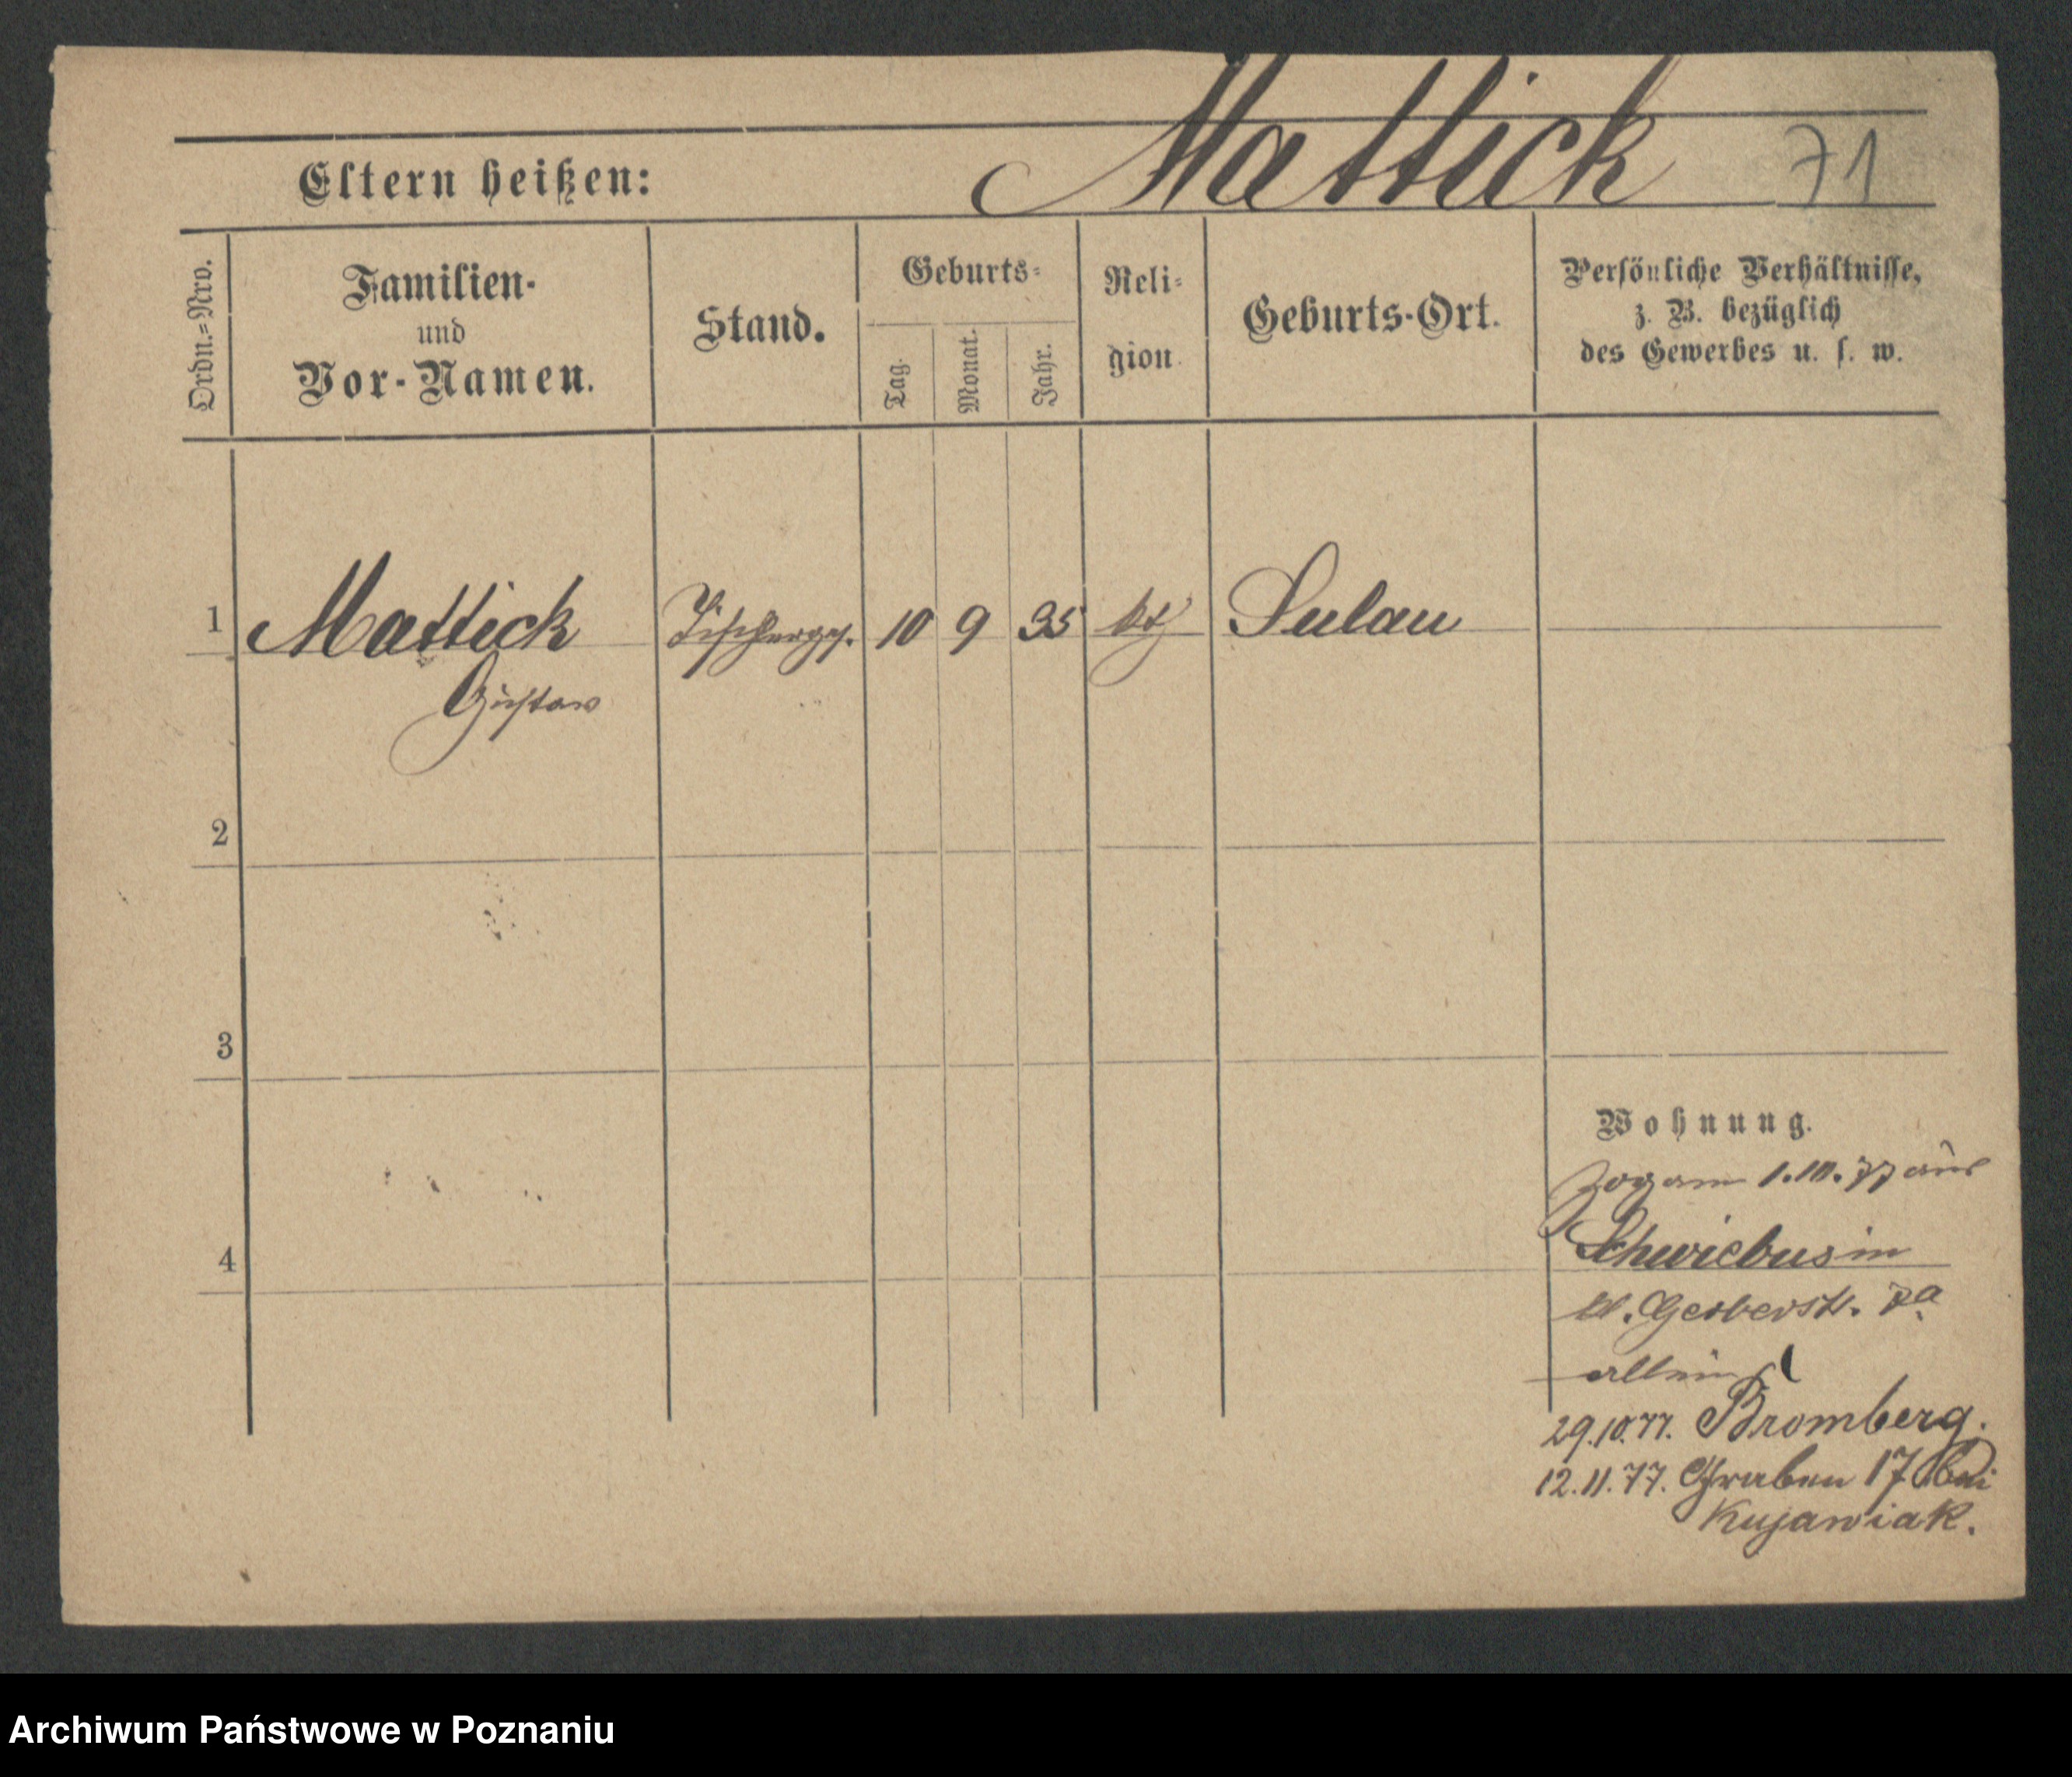 Mattick 71
Eltern heißen:
Ordn.=Nro.
Familien-
und
Vor-Namen.
Stand.
Geburts=
Tag.
Monat.
Jahr.
Reli=
gion
Geburts-Ort.
Persönliche Verhältnisse,
z. B. bezüglich
des Gewerbes u. s. w.
1 Mattick Tischlerges. 10 9 35 kt Sulau
Gustav
2
3
4
Wohnung.
Zog am 1.10.77 aus
Schwiebus in
kl. Gerberstr. 7a
allein
29.10.77. Bromberg.
12.11.77. Graben 17 bei
Kujawiak.
Archiwum Państwowe w Poznaniu